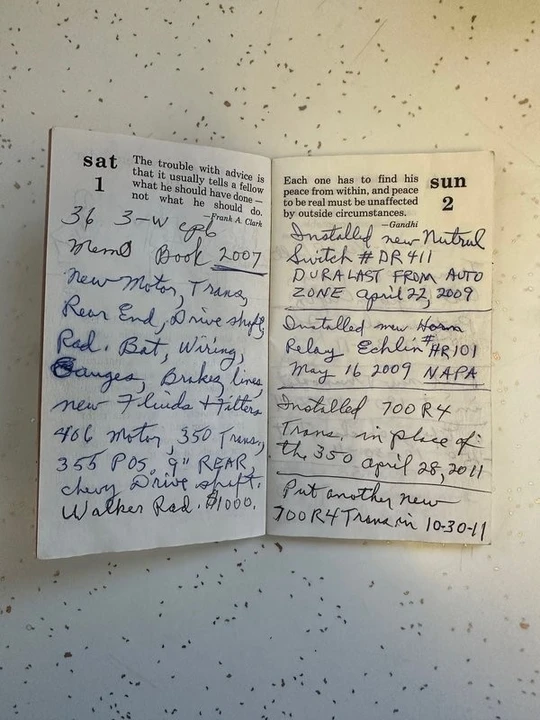 sat
1
The trouble with advice is
that it usually tells a fellow
what he should have done —
not what he should do.
—Frank A. Clark
36 3-W cpe
Memo Book 2007
New Motor, Trans,
Rear End, Drive shaft,
Rad. Bat, Wiring,
Gauges, Brakes, lines,
new Fluids + Filters
406 Motor, 350 Trans.,
355 POS. 9" REAR,
chevy Drive shaft.
Walker Rad. $1000.
sun
2
Each one has to find his
peace from within, and peace
to be real must be unaffected
by outside circumstances.
—Gandhi
Installed new Nutrul
Switch # DR 411
DURALAST FROM AUTO
ZONE april 22, 2009
Installed new Horn
Relay Echlin # HR101
May 16 2009 NAPA
Installed 700 R4
Trans. in place of
the 350 april 28, 2011
Put another new
700 R4 Trans in 10-30-11